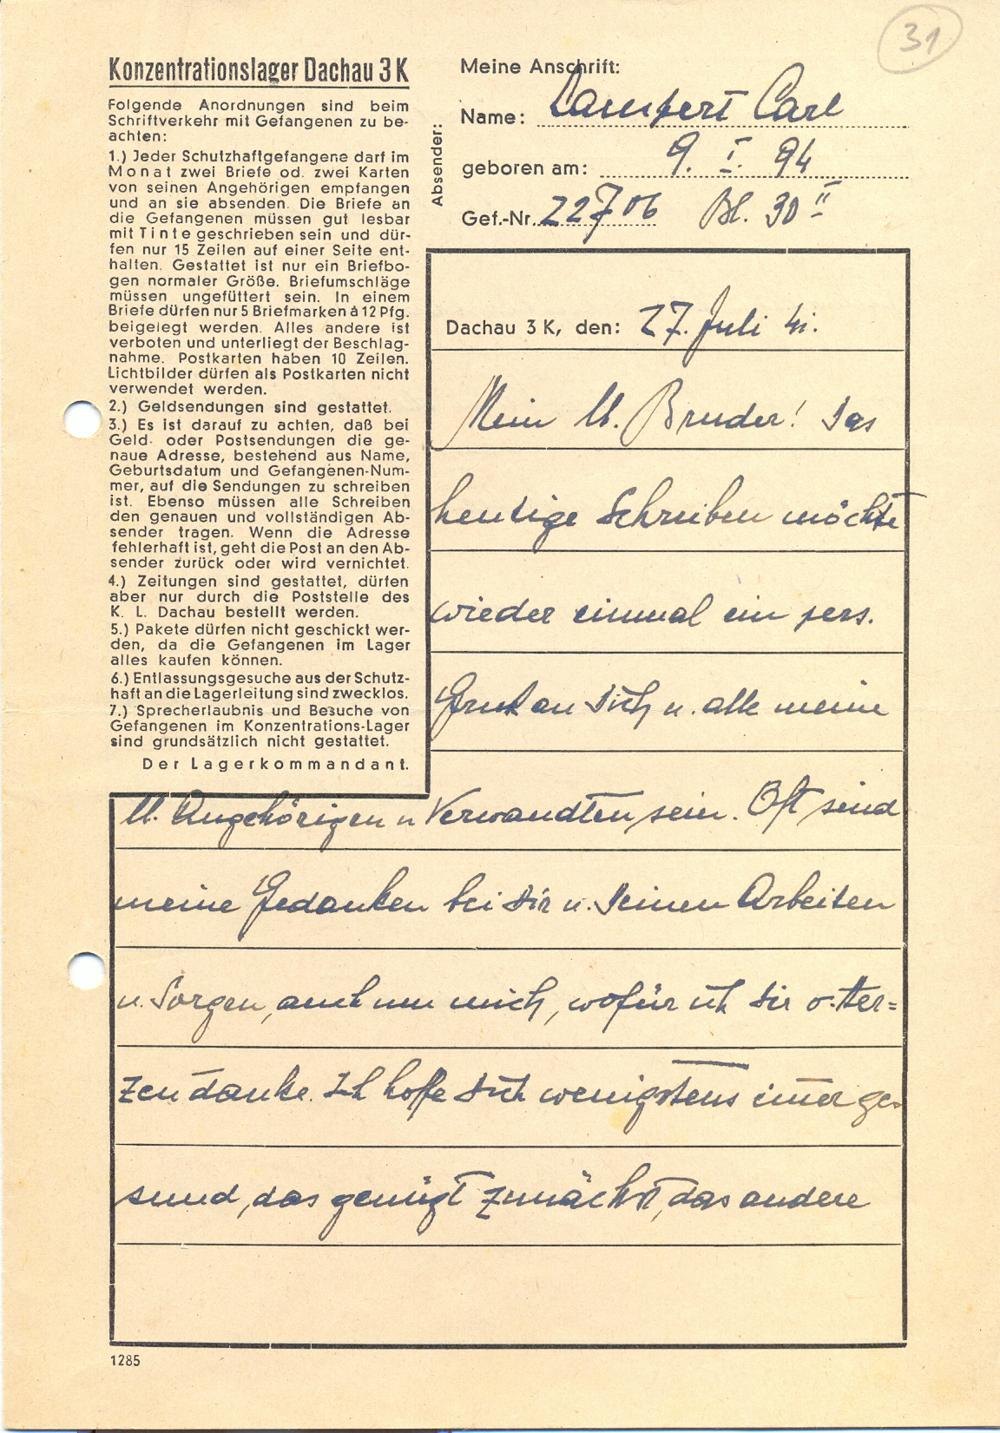 31
Konzentrationslager Dachau 3 K
Folgende Anordnungen sind beim
Schriftverkehr mit Gefangenen zu be-
achten:
1.) Jeder Schutzhaftgefangene darf im
Monat zwei Briefe od. zwei Karten
von seinen Angehörigen empfangen
und an sie absenden. Die Briefe an
die Gefangenen müssen gut lesbar
mit Tinte geschrieben sein und dür-
fen nur 15 Zeilen auf einer Seite ent-
halten. Gestattet ist nur ein Briefbo-
gen normaler Größe. Briefumschläge
müssen ungefüttert sein. In einem
Briefe dürfen nur 5 Briefmarken à 12 Pfg.
beigelegt werden. Alles andere ist
verboten und unterliegt der Beschlag-
nahme. Postkarten haben 10 Zeilen.
Lichtbilder dürfen als Postkarten nicht
verwendet werden.
2.) Geldsendungen sind gestattet.
3.) Es ist darauf zu achten, daß bei
Geld- oder Postsendungen die ge-
naue Adresse, bestehend aus Name,
Geburtsdatum und Gefangenen-Num-
mer, auf die Sendungen zu schreiben
ist. Ebenso müssen alle Schreiben
den genauen und vollständigen Ab-
sender tragen. Wenn die Adresse
fehlerhaft ist, geht die Post an den Ab-
sender zurück oder wird vernichtet.
4.) Zeitungen sind gestattet, dürfen
aber nur durch die Poststelle des
K. L. Dachau bestellt werden.
5.) Pakete dürfen nicht geschickt wer-
den, da die Gefangenen im Lager
alles kaufen können.
6.) Entlassungsgesuche aus der Schutz-
haft an die Lagerleitung sind zwecklos.
7.) Sprecherlaubnis und Besuche von
Gefangenen im Konzentrations-Lager
sind grundsätzlich nicht gestattet.
Der Lagerkommandant.
Absender:
Meine Anschrift:
Name: Lampert Carl
geboren am: 9. I. 94
Gef.-Nr. 22706 Bl. 30 II
Dachau 3 K, den: 27. Juli 41.
Mein lb. Bruder! Das
heutige Schreiben möchte
wieder einmal ein pers.
Gruß an Dich u. alle meine
lb. Angehörigen u Verwandten sein. Oft sind
meine Gedanken bei Dir u. Deinen Arbeiten
u. Sorgen, auch um mich, wofür ich Dir v. Her=
zen danke. Ich hoffe Dich wenigstens im̅er ge-
sund, das genügt zunächst, das andere
1285